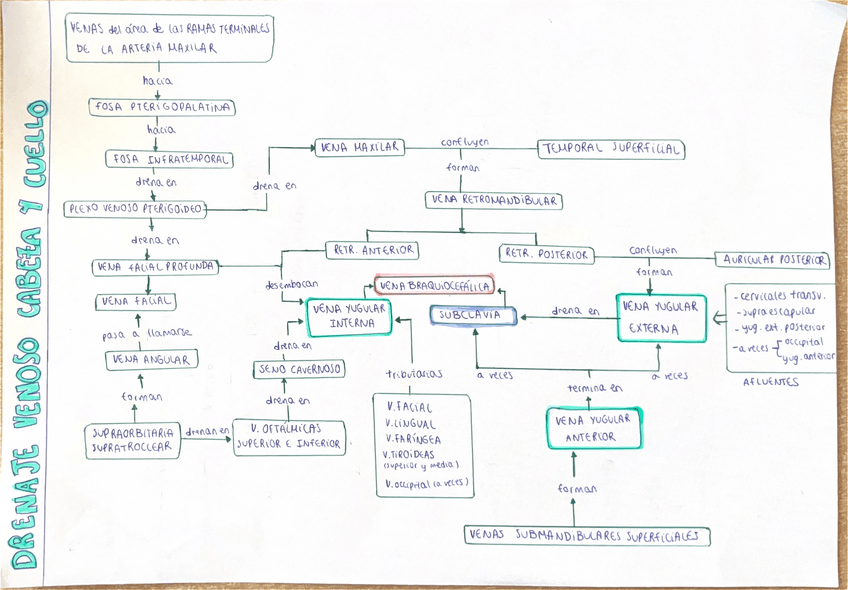 DRENAJE VENOSO CABEZA Y CUELLO
VENAS del área de las RAMAS TERMINALES
DE LA ARTERIA MAXILAR
hacia
FOSA PTERIGOPALATINA
hacia
FOSA INFRATEMPORAL
drena en
PLEXO VENOSO PTERIGOIDEO
drena en
VENA FACIAL PROFUNDA
VENA FACIAL
pasa a llamarse
VENA ANGULAR
forman
SUPRAORBITARIA
SUPRATROCLEAR
drenan en
V. OFTÁLMICAS
SUPERIOR E INFERIOR
drena en
SENO CAVERNOSO
drena en
drena en
VENA MAXILAR
confluyen
TEMPORAL SUPERFICIAL
forman
VENA RETROMANDIBULAR
RETR. ANTERIOR
RETR. POSTERIOR
confluyen
AURICULAR POSTERIOR
forman
desembocan
VENA BRAQUIOCEFÁLICA
VENA YUGULAR
INTERNA
SUBCLAVIA
drena en
VENA YUGULAR
EXTERNA
- cervicales transv.
- supraescapular
- yug. ext. posterior
- a veces occipital
yug. anterior
AFLUENTES
tributarias
V. FACIAL
V. LINGUAL
V. FARÍNGEA
V. TIROIDEAS
(superior y media)
V. occipital (a veces)
a veces
a veces
termina en
VENA YUGULAR
ANTERIOR
forman
VENAS SUBMANDIBULARES SUPERFICIALES